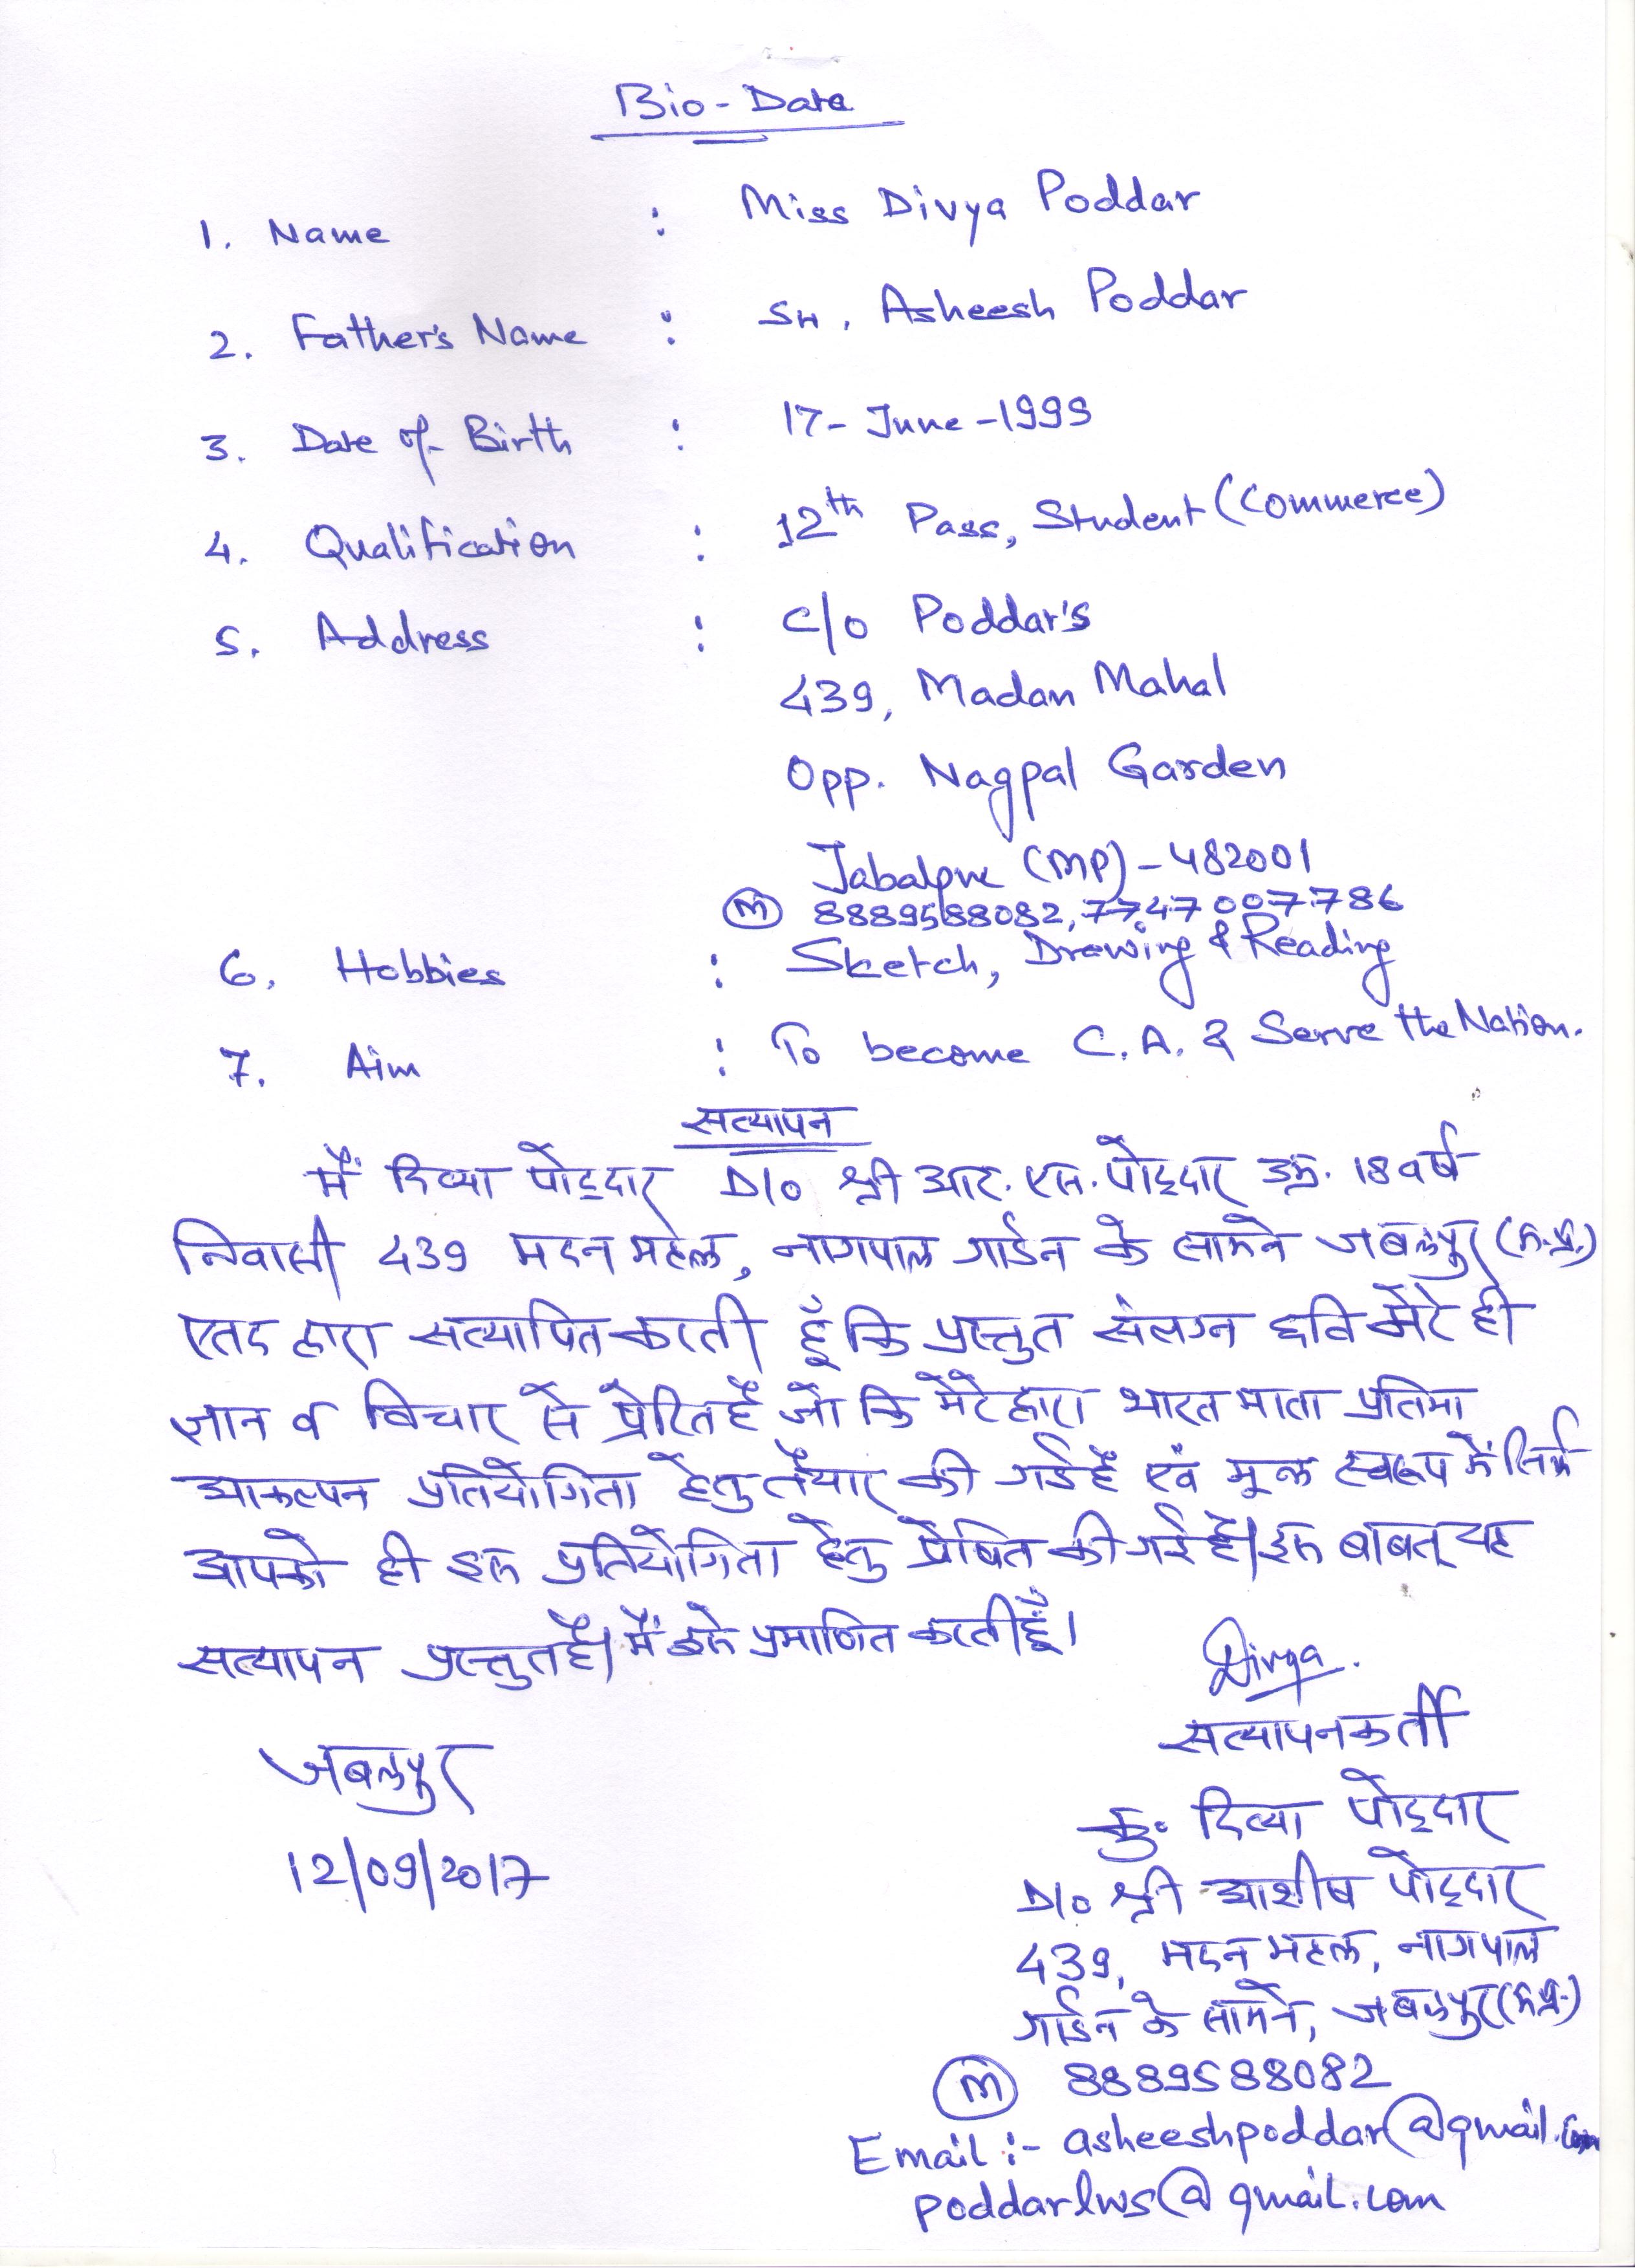 Bio-Data
1. Name : Miss Divya Poddar
2. Father's Name : Sh. Asheesh Poddar
3. Date of Birth : 17-June-1999
4. Qualification : 12th Pass, Student (Commerce)
5. Address : C/o Poddar's
439, Madan Mahal
Opp. Nagpal Garden
Jabalpur (MP)-482001
(M) 8889588082, 7747007786
6. Hobbies : Sketch, Drawing & Reading
7. Aim : To become C.A. & Serve the Nation.
सत्यापन
मैं दिव्या पोद्दार D/o श्री आर. एस. पोद्दार उम्र. 18 वर्ष
निवासी 439 मदन महल, नागपाल गार्डन के सामने जबलपुर (म.प्र.)
एतद द्वारा सत्यापित करती हूँ कि प्रस्तुत संलग्न छवि मेरे ही
ज्ञान व विचार से प्रेरित है जो कि मेरे द्वारा भारत माता प्रतिमा
आकल्पन प्रतियोगिता हेतु तैयार की गई है एवं मूल स्वरूप में सिर्फ
आपको ही इस प्रतियोगिता हेतु प्रेषित की गई है। इस बाबत् यह
सत्यापन प्रस्तुत है। मैं इसे प्रमाणित करती हूँ।
Divya.
सत्यापनकर्ती
जबलपुर
कु. दिव्या पोद्दार
12/09/2017
D/o श्री आशीष पोद्दार
439, मदन महल, नागपाल
गार्डन के सामने, जबलपुर (म.प्र.)
(M) 8889588082
Email :- asheeshpoddar@gmail.com
poddarlws@gmail.com